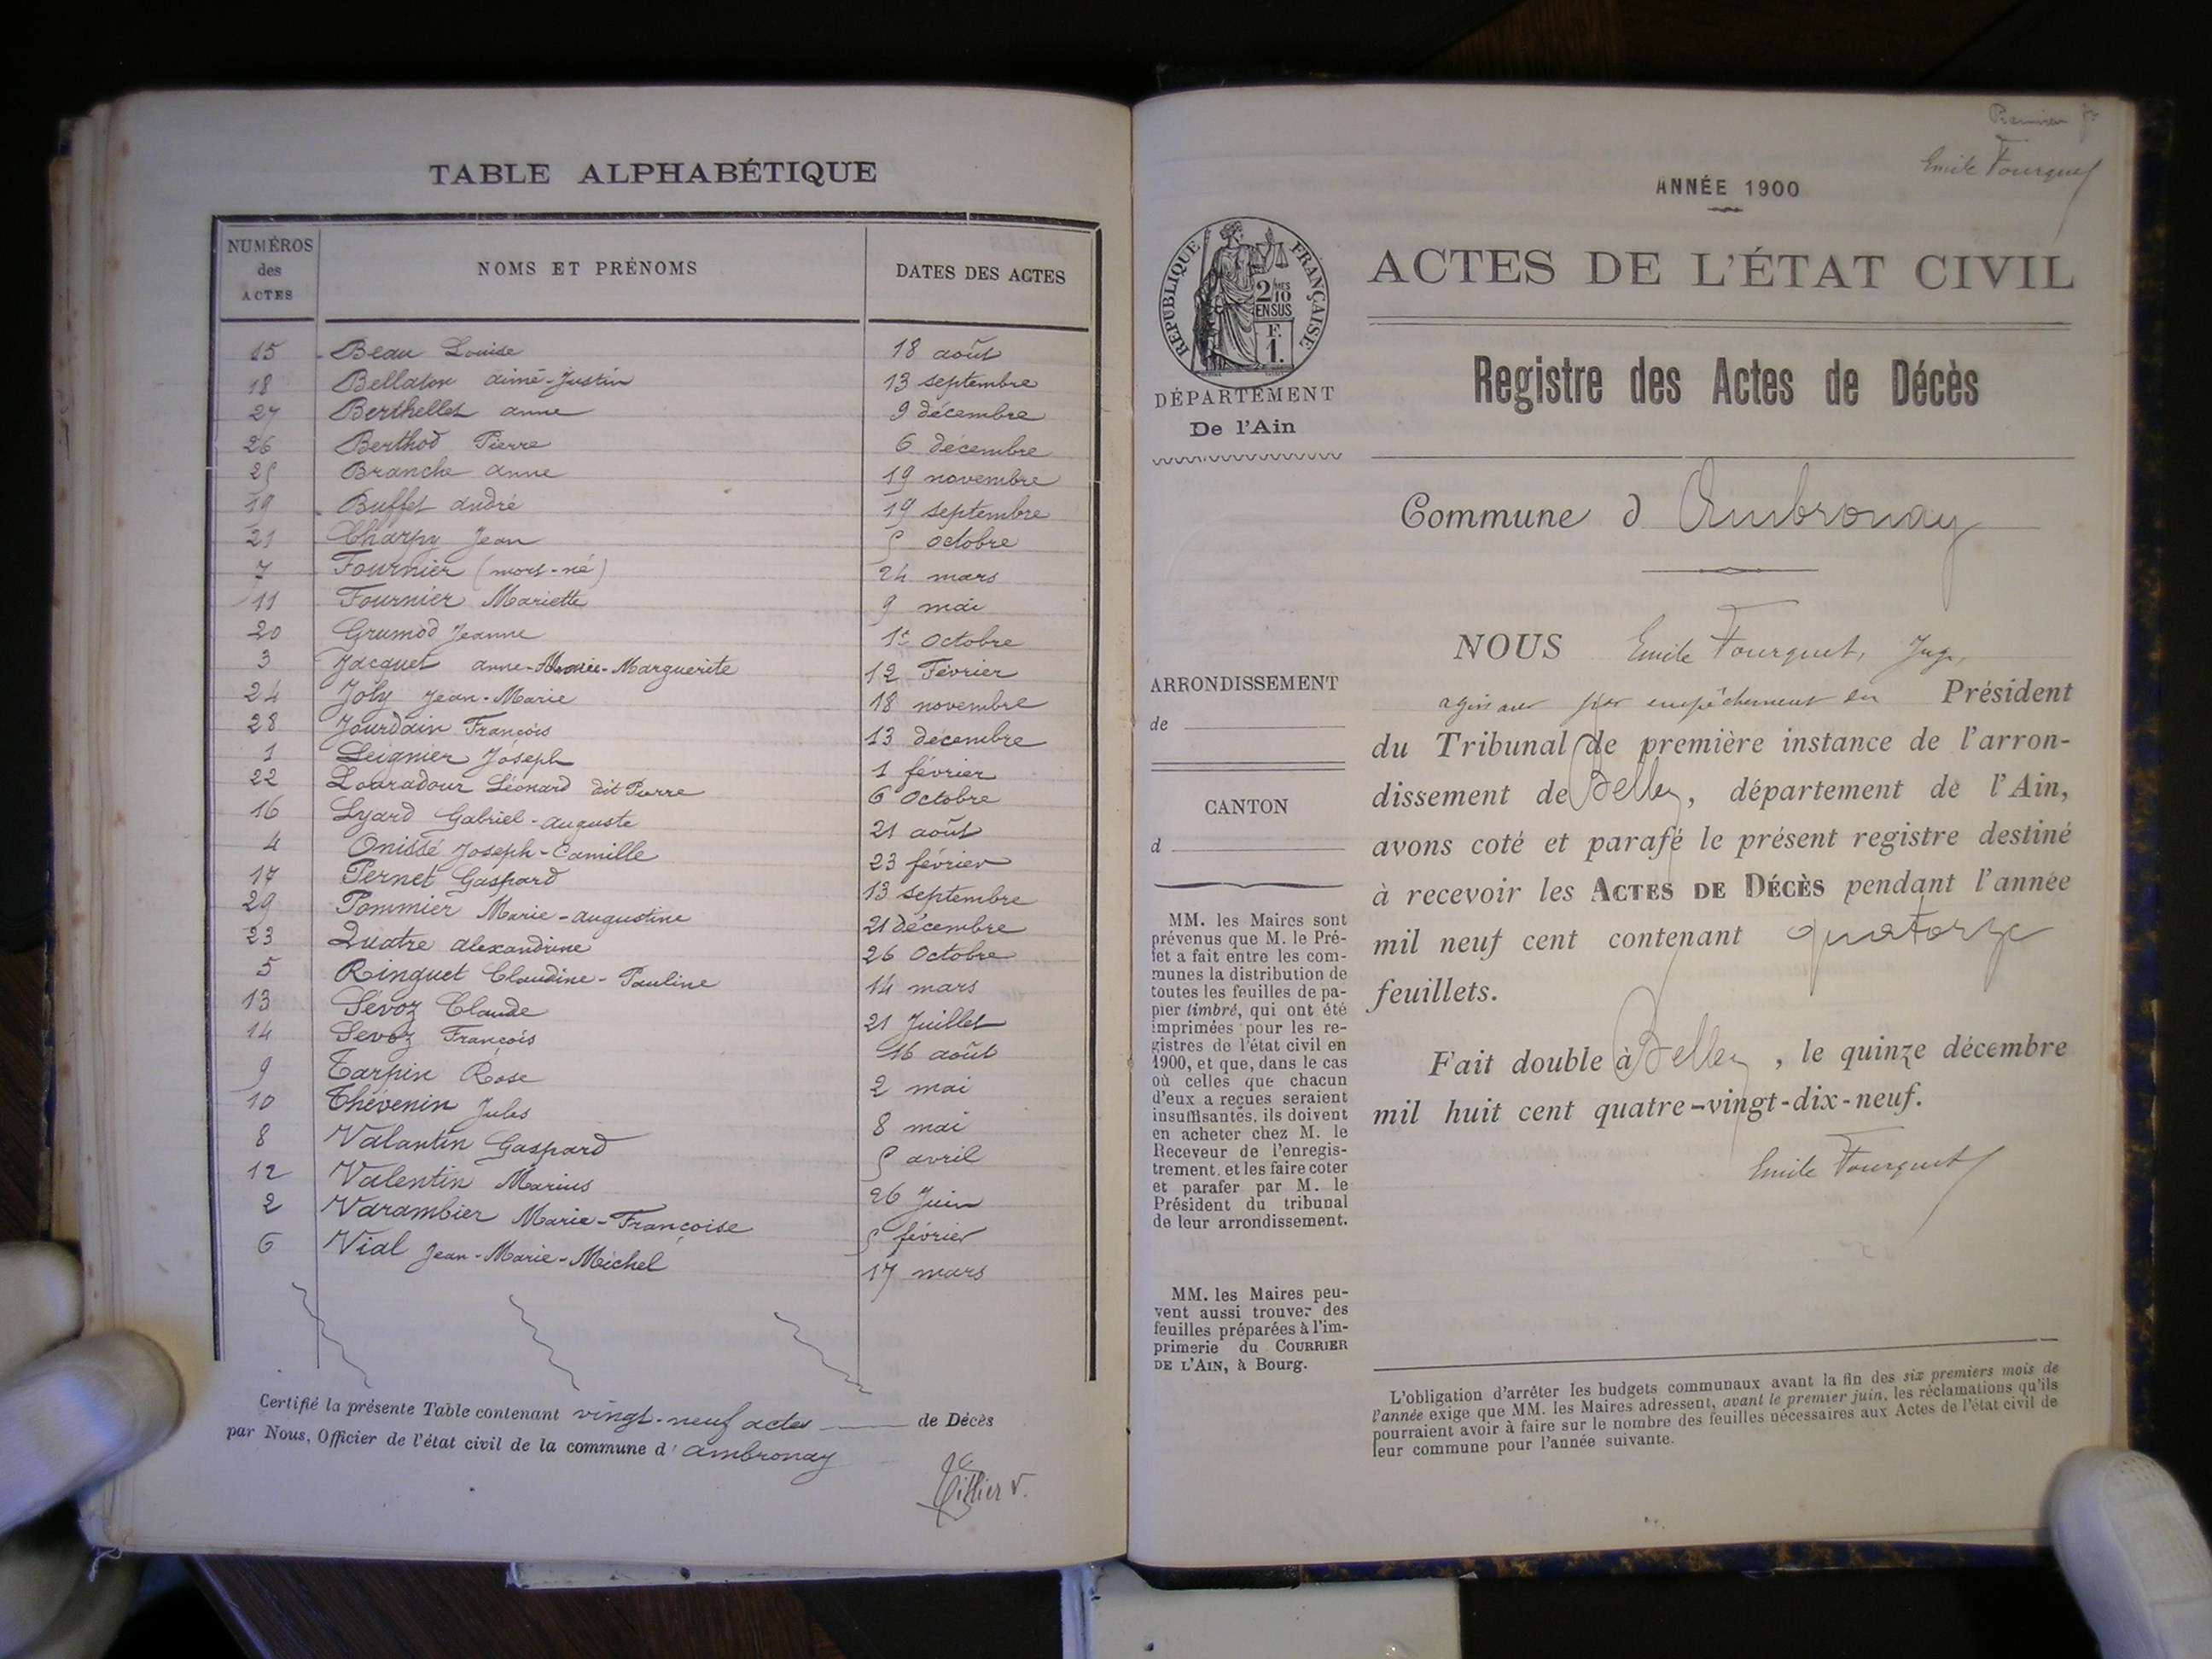 TABLE ALPHABÉTIQUE
NUMÉROS des ACTES NOMS ET PRÉNOMS DATES DES ACTES
15 Beau Louise 18 août
18 Bellaton aimé-Justin 13 septembre
27 Berthellet anne 9 décembre
26 Berthod Pierre 6 décembre
25 Branche anne 19 novembre
19 Buffet andré 19 septembre
21 Charpy Jean 5 octobre
7 Fournier (mort-né) 24 mars
11 Fournier Mariette 9 mai
20 Grumod Jeanne 1er Octobre
3 Jacquet anne-Marie-Marguerite 12 Février
24 Joly Jean-Marie 18 novembre
28 Jourdain François 13 décembre
1 Leignier Joseph 1 février
22 Louradour Léonard dit Pierre 6 Octobre
16 Lyard Gabriel-auguste 21 août
4 Onissé Joseph-Camille 23 février
17 Pernet Gaspard 13 septembre
29 Pommier Marie-augustine 21 décembre
23 Quatre alexandrine 26 Octobre
5 Ringuet Claudine-Pauline 14 mars
13 Sévoz Claude 21 Juillet
14 Sevoz François 16 août
9 Tarpin Rose 2 mai
10 Thévenin Jules 8 mai
8 Valantin Gaspard 5 avril
12 Valentin Marius 26 Juin
2 Varambier Marie-Françoise 5 février
6 Vial Jean-Marie-Michel 17 mars
Certifié la présente Table contenant vingt-neuf actes de Décès
par Nous, Officier de l'état civil de la commune d'ambronay
Emile Fourquet
ANNÉE 1900
RÉPUBLIQUE FRANÇAISE
2/10 MES
EN SUS
F.
1.
ACTES DE L'ÉTAT CIVIL
Registre des Actes de Décès
DÉPARTEMENT
De l'Ain
Commune d Ambronay
ARRONDISSEMENT
de
CANTON
d
MM. les Maires sont
prévenus que M. le Pré-
fet a fait entre les com-
munes la distribution de
toutes les feuilles de pa-
pier timbré, qui ont été
imprimées pour les re-
gistres de l'état civil en
1900, et que, dans le cas
où celles que chacun
d'eux a reçues seraient
insuffisantes, ils doivent
en acheter chez M. le
Receveur de l'enregis-
trement, et les faire coter
et parafer par M. le
Président du tribunal
de leur arrondissement.
MM. les Maires peu-
vent aussi trouver des
feuilles préparées à l'im-
primerie du COURRIER
DE L'AIN, à Bourg.
NOUS Emile Fourquet, Juge,
agissant par empêchement du Président
du Tribunal de première instance de l'arron-
dissement de Belley, département de l'Ain,
avons coté et parafé le présent registre destiné
à recevoir les ACTES DE DÉCÈS pendant l'année
mil neuf cent contenant quatorze
feuillets.
Fait double à Belley, le quinze décembre
mil huit cent quatre-vingt-dix-neuf.
Emile Fourquet
L'obligation d'arrêter les budgets communaux avant la fin des six premiers mois de
l'année exige que MM. les Maires adressent, avant le premier juin, les réclamations qu'ils
pourraient avoir à faire sur le nombre des feuilles nécessaires aux Actes de l'état civil de
leur commune pour l'année suivante.